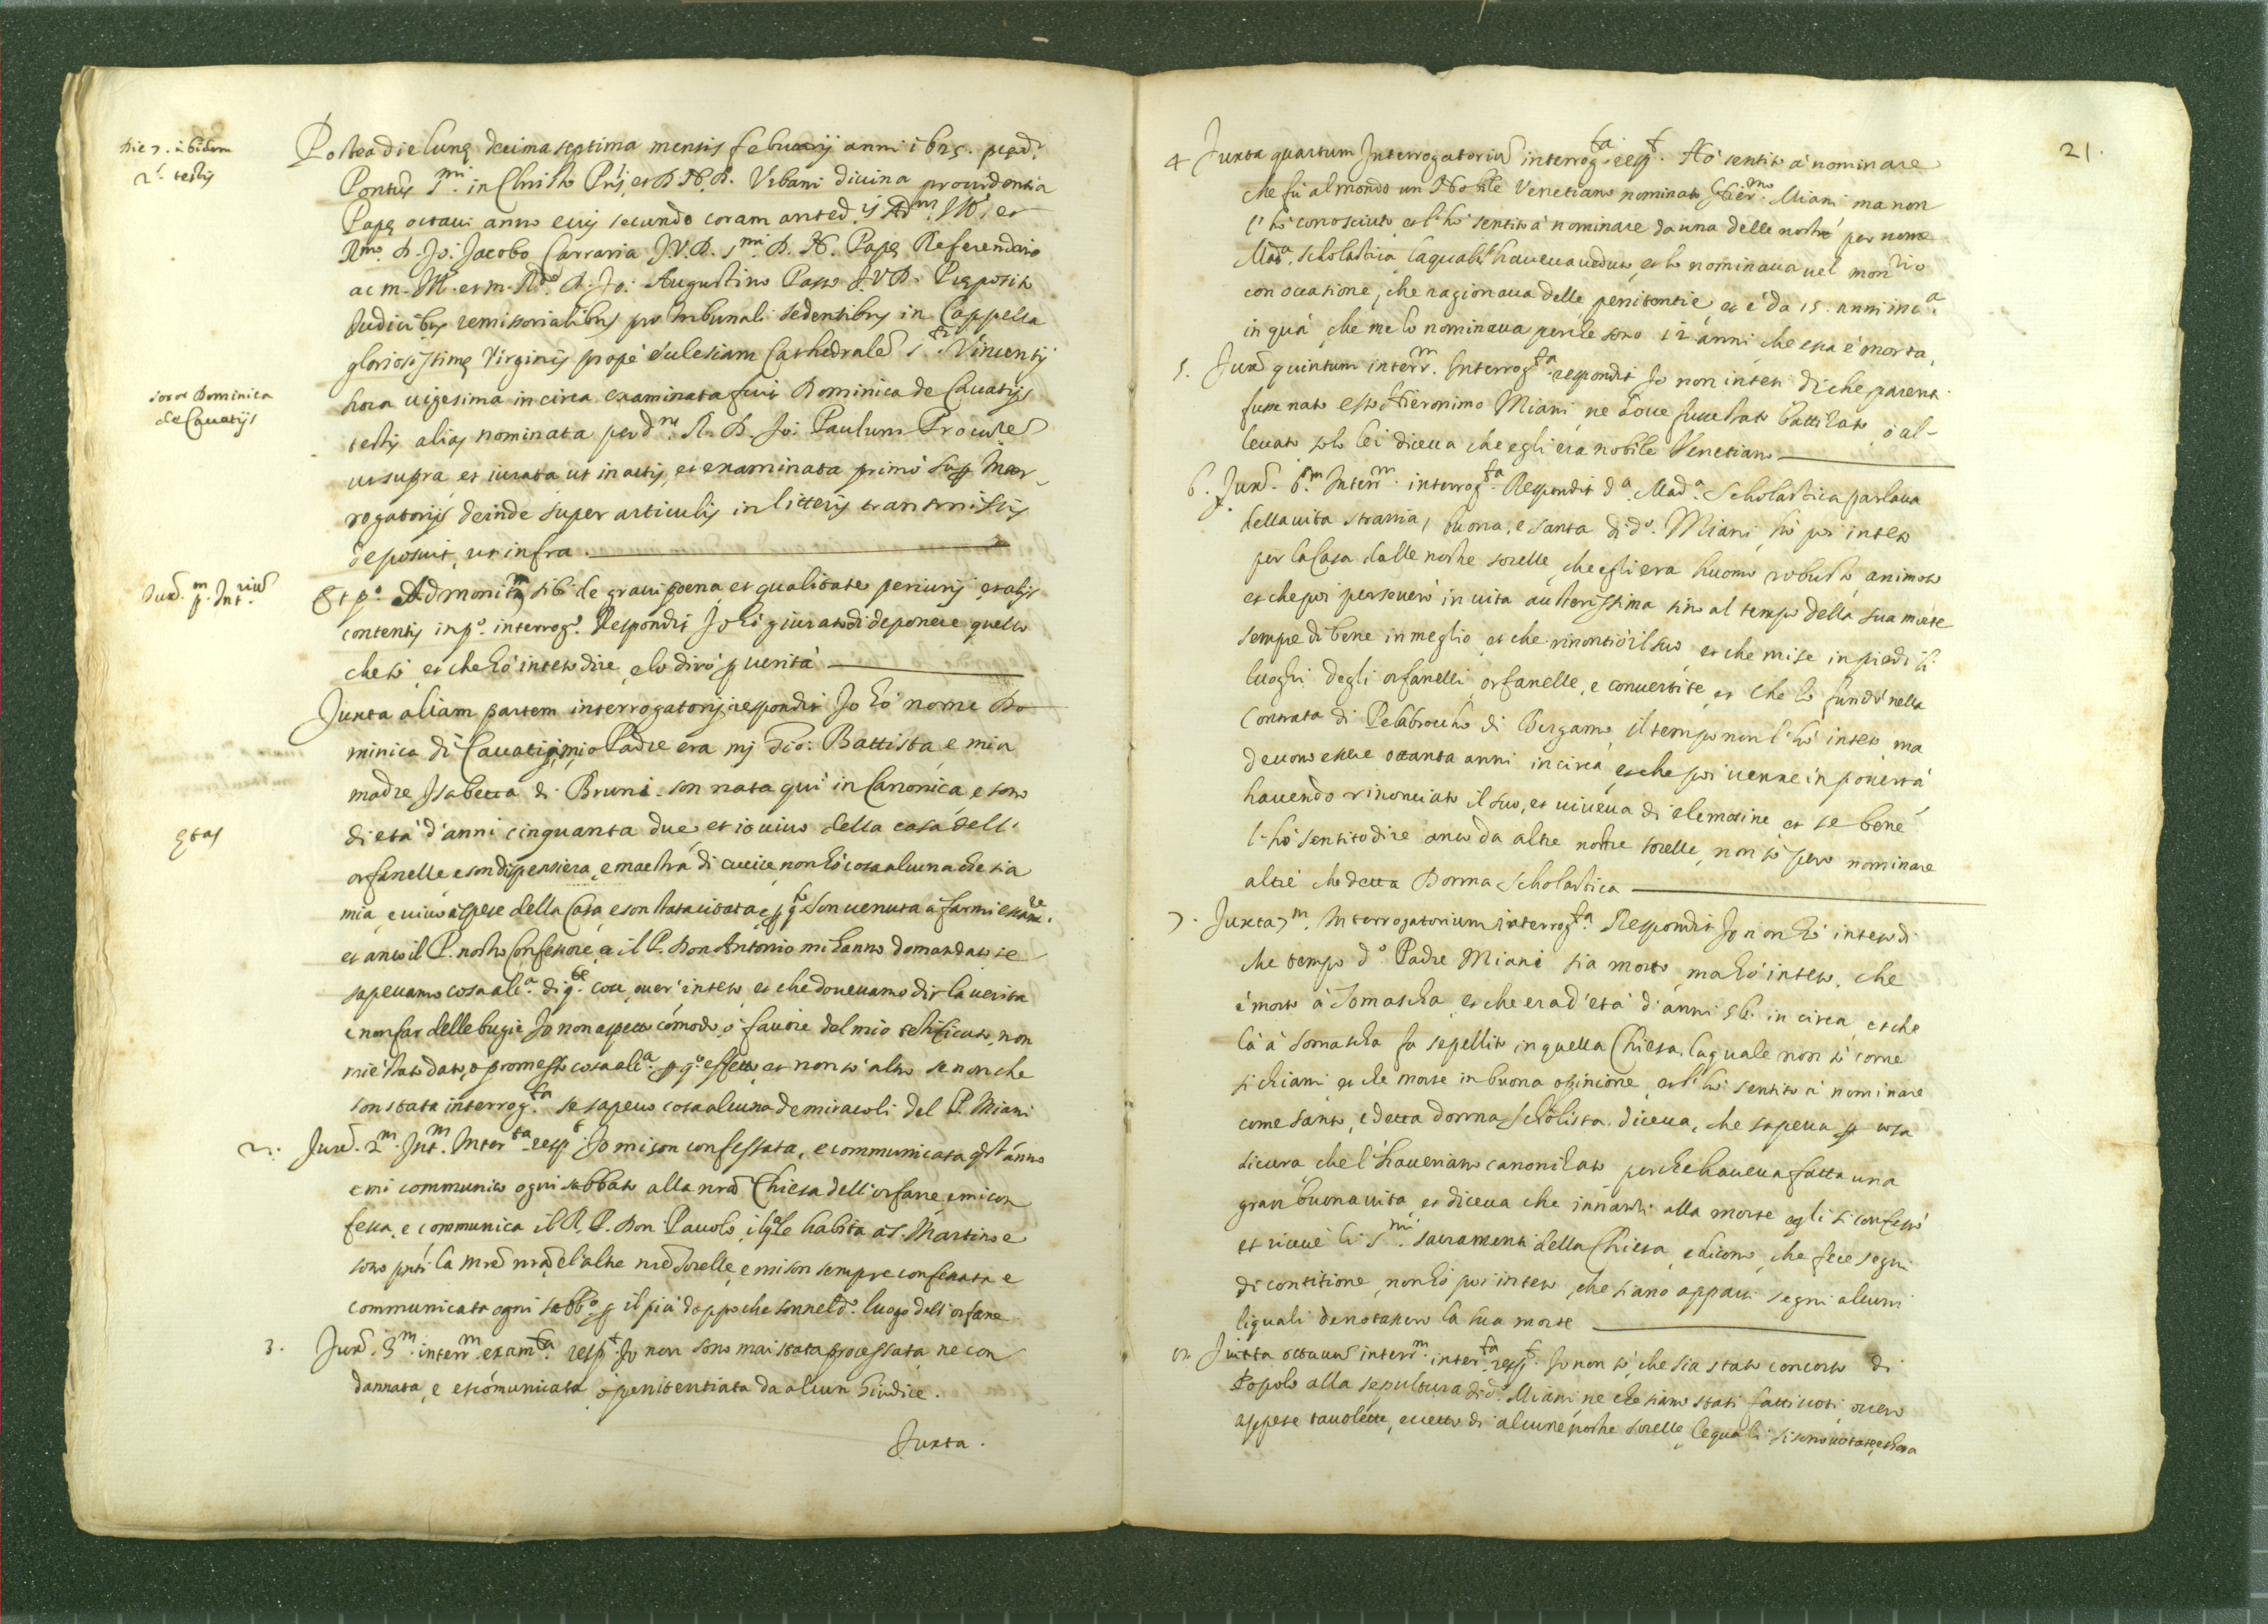 Die 7. ibidem
2.s testis
Postea die lunę decima septima mensis februarij anni 1625. pręd.i
Pontus S.mi in Christo Pris, et D. N. D. Urbani divina providentia
Papę octavi anno eius secundo coram anted.is Ill.mo et
R.mo D. Jo: Jacobo Carraria J.V.D. S.mi D. N. Papę Referendario
ac m. Ill. et m. R.do D. Jo: Augustino Passo J.V.D. Pręposito
Iudicibus remissorialibus pro tribunali sedentibus in Cappella
gloriosissimę Virginis propè ecclesiam Cathedralē S.ti Vincentij
hora vigesima in circa examinata fuit Dominica de Cavatijs
soror Dominica
de Cavatijs
testis alias nominata per d.m R. D. Jo: Paulum Procurē
ut supra, et iurata ut in actis, et examinata primò sup Inter-
rogatorijs deinde super articulis in litteris transmissis
deposuit, ut infra.
Iux. p.m Int.rium
Et p.o Admonita sibi de gravi poena, et qualitate periurij, et alijs
contentis in p.o interrog.o Respondit Io hò giurato di deponere quello
che sò, et che hò inteso dire, e lo dirò p verità
Juxta aliam partem interrogatorij respondit Io hò nome Do
minica di Cavatijs, mio Padre era ms Gio: Battista, e mia
madre Isabetta di Bruni. son nata qui in Canonica, e sono
Ętas
di età d'anni cinquanta due, et io vivo della casa dell'
orfanelle, e son dispensiera, e maestra di cucire non hò cosa alcuna che sia
mia, e vivo à spese della Casa, e son stata citata, e p q.to son venuta à farmi essam.re
et anco il P. nostro Confessore, e il P. Don Antonio mi hanno domandato se
sapevamo cosa alc.a di q.te cose, over' inteso, et che dovevamo dir la verità
e non far delle bugie Io non aspetto cómodo, ò favore del mio testificato, non
mi è stato dato, ò promesso cosa alc.a p q.o effetto, et non sò altro se non che
son stata interrog.ta se sapevo cosa alcuna de miracoli del P. Miani
2. Juxā. 2.m Int.m Inter.ta resp.t Io mi son confessata, e communicata q.st' anno
e mi communico ogni sabbato alla nrā Chiesa dell'orfane, e mi con
fessa, e communica il R. P. Don Pavolo, il q.le habita à S. Martino e
sono pnti la Mrē nrā, e l'altre nrē Sorelle, e mi son sempre confessata e
communicata ogni sabb.o p il più doppo che son nel d.o luogo dell'orfane
3. Juxā. 3.m interr.m exam.ta resp.t Io non sono mai stata processata, ne con
dannata, e escómunicata, ò penitentiata da alcun Giudice.
Juxta.
21.
4 Juxta quartum Interrogatoriū interrog.ta resp.t Hò sentito à nominare
che fù al mondo un Nobile Venetiano nominato Hier.mo Miani ma non
l'hò conosciuto, et l'hò sentito à nominare da una delle nostre per nome
Mad.a Scholastica, la quale l'haveva veduto, et lo nominava nel mon.rio
con occasione, che ragionava delle penitentie, et è da 15. anni inc.a
in quà, che me lo nominava perche sono 12 anni, che essa è morta,
5. Juxā quintum interr.m Interrog.ta respondit Io non intesi di che parenti
fusse nato esso Hieronimo Miani, ne dove fusse stato battizato, ò al-
levato, solo lei diceva che egli era nobile Venetiano
6. Juxā. 6.m Interr.m interrog.ta Respondit d.a Mad.a Scholastica parlava
della vita strania, buona, e santa di d.o Miani, hò poi inteso
per la Casa dalle nostre sorelle, che egli era huomo robusto, animoso
et che poi perseverò in vita austerissima sino al tempo della sua morte
sempre di bene in meglio, et che rinontiò il suo, et che mise in piedi li
luoghi degli orfanelli, orfanelle, e convertite, et che lo fundò nella
Contrata di Pelabrocho di Bergamo, il tempo non l'hò inteso ma
devono essere ottanta anni in circa, et che poi venne in povertà
havendo rinonciato il suo, et viveva di elemosine, et se bene
l'hò sentito dire anco da altre nostre sorelle, non sò però nominare
altre che detta Donna Scholastica
7. Juxta 7.m Interrogatorium interrog.ta Respondit Io non hò inteso di
che tempo d.o Padre Miani sia morto, ma hò inteso, che
è morto à Somascha, et che era d'età d'anni 56. in circa, et che
là à Somascha fu sepellito in quella Chiesa, la quale non sò come
si chiami, et che morse in buona opinione, et l'hò sentito à nominare
come santo, e detta donna Scholista diceva, che sapeva p cosa
sicura che l'haveriano canonizato perche haveva fatta una
gran buona vita, et diceva che innanti alla morte egli si confessò
et ricevè li S.mi sacramenti della Chiesa, e dicono, che fece segni
di contitione, non hò poi inteso, che siano apparsi segni alcuni
li quali denotassero la sua morte
8. Juxta octavū interr.m inter.ta resp.t Io non sò, che sia stato concorso di
Popolo alla sepultura di d.o Miani, ne che siano stati fatti voti, overo
appese tavolette, eccetto di alcune nostre sorelle, le quali si sono votate, et hora